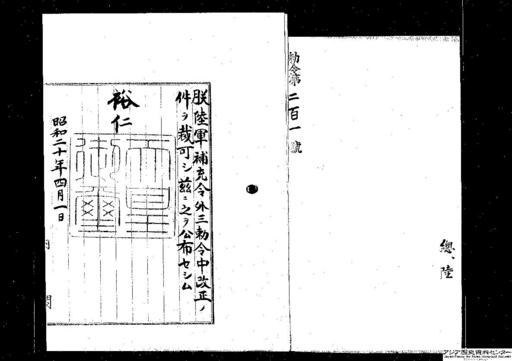 勅令第二百一號
總、陸
朕陸軍補充令外三勅令中改正ノ
件ヲ裁可シ茲ニ之ヲ公布セシム
裕仁
天皇御璽
昭和二十年四月一日
内閣
アジア歴史資料センター